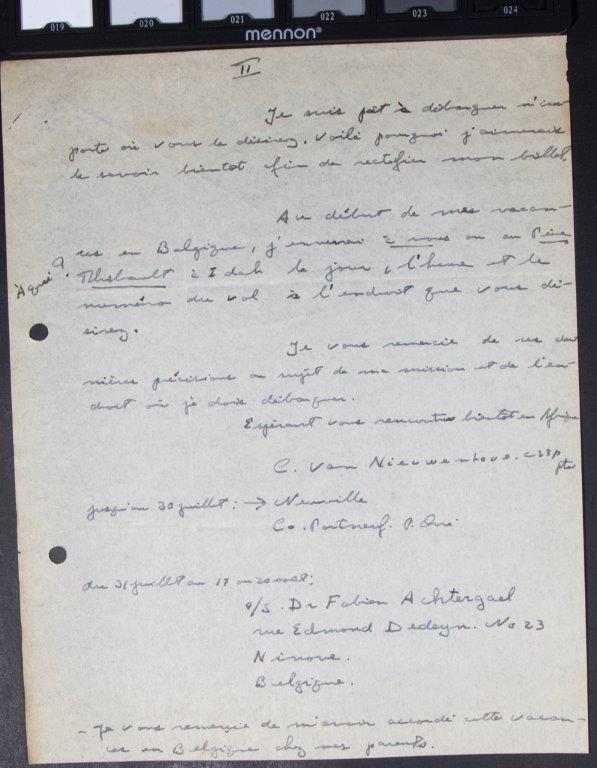 019 020 021 022 023 024
mennon®
II
Je suis prêt à débarquer n'im-
porte où vous le désirez. Voilà pourquoi j'aimerais
le savoir bientôt afin de rectifier mon billet.
Au début de mes vacan-
ces en Belgique, j'enverrai à vous ou au Père
À quoi ?
Thibault à Idah le jour, l'heure et le
numéro du vol à l'endroit que vous dé-
sirez.
Je vous remercie de ces der
nières précisions au sujet de ma mission et de l'en-
droit où je dois débarquer.
Espérant vous rencontrer bientôt en Afrique
C. Van Nieuwenhove. cssp
ptre
jusqu'au 30 juillet: → Neuville
Co. Portneuf. P. Qué.
du 31 juillet au 17 ou 20 août:
a/s. Dr Fabien Achtergael
rue Edmond Dedeyn. No 23
Ninove.
Belgique.
- Je vous remercie de m'avoir accordé cette vacan-
ces en Belgique chez mes parents.